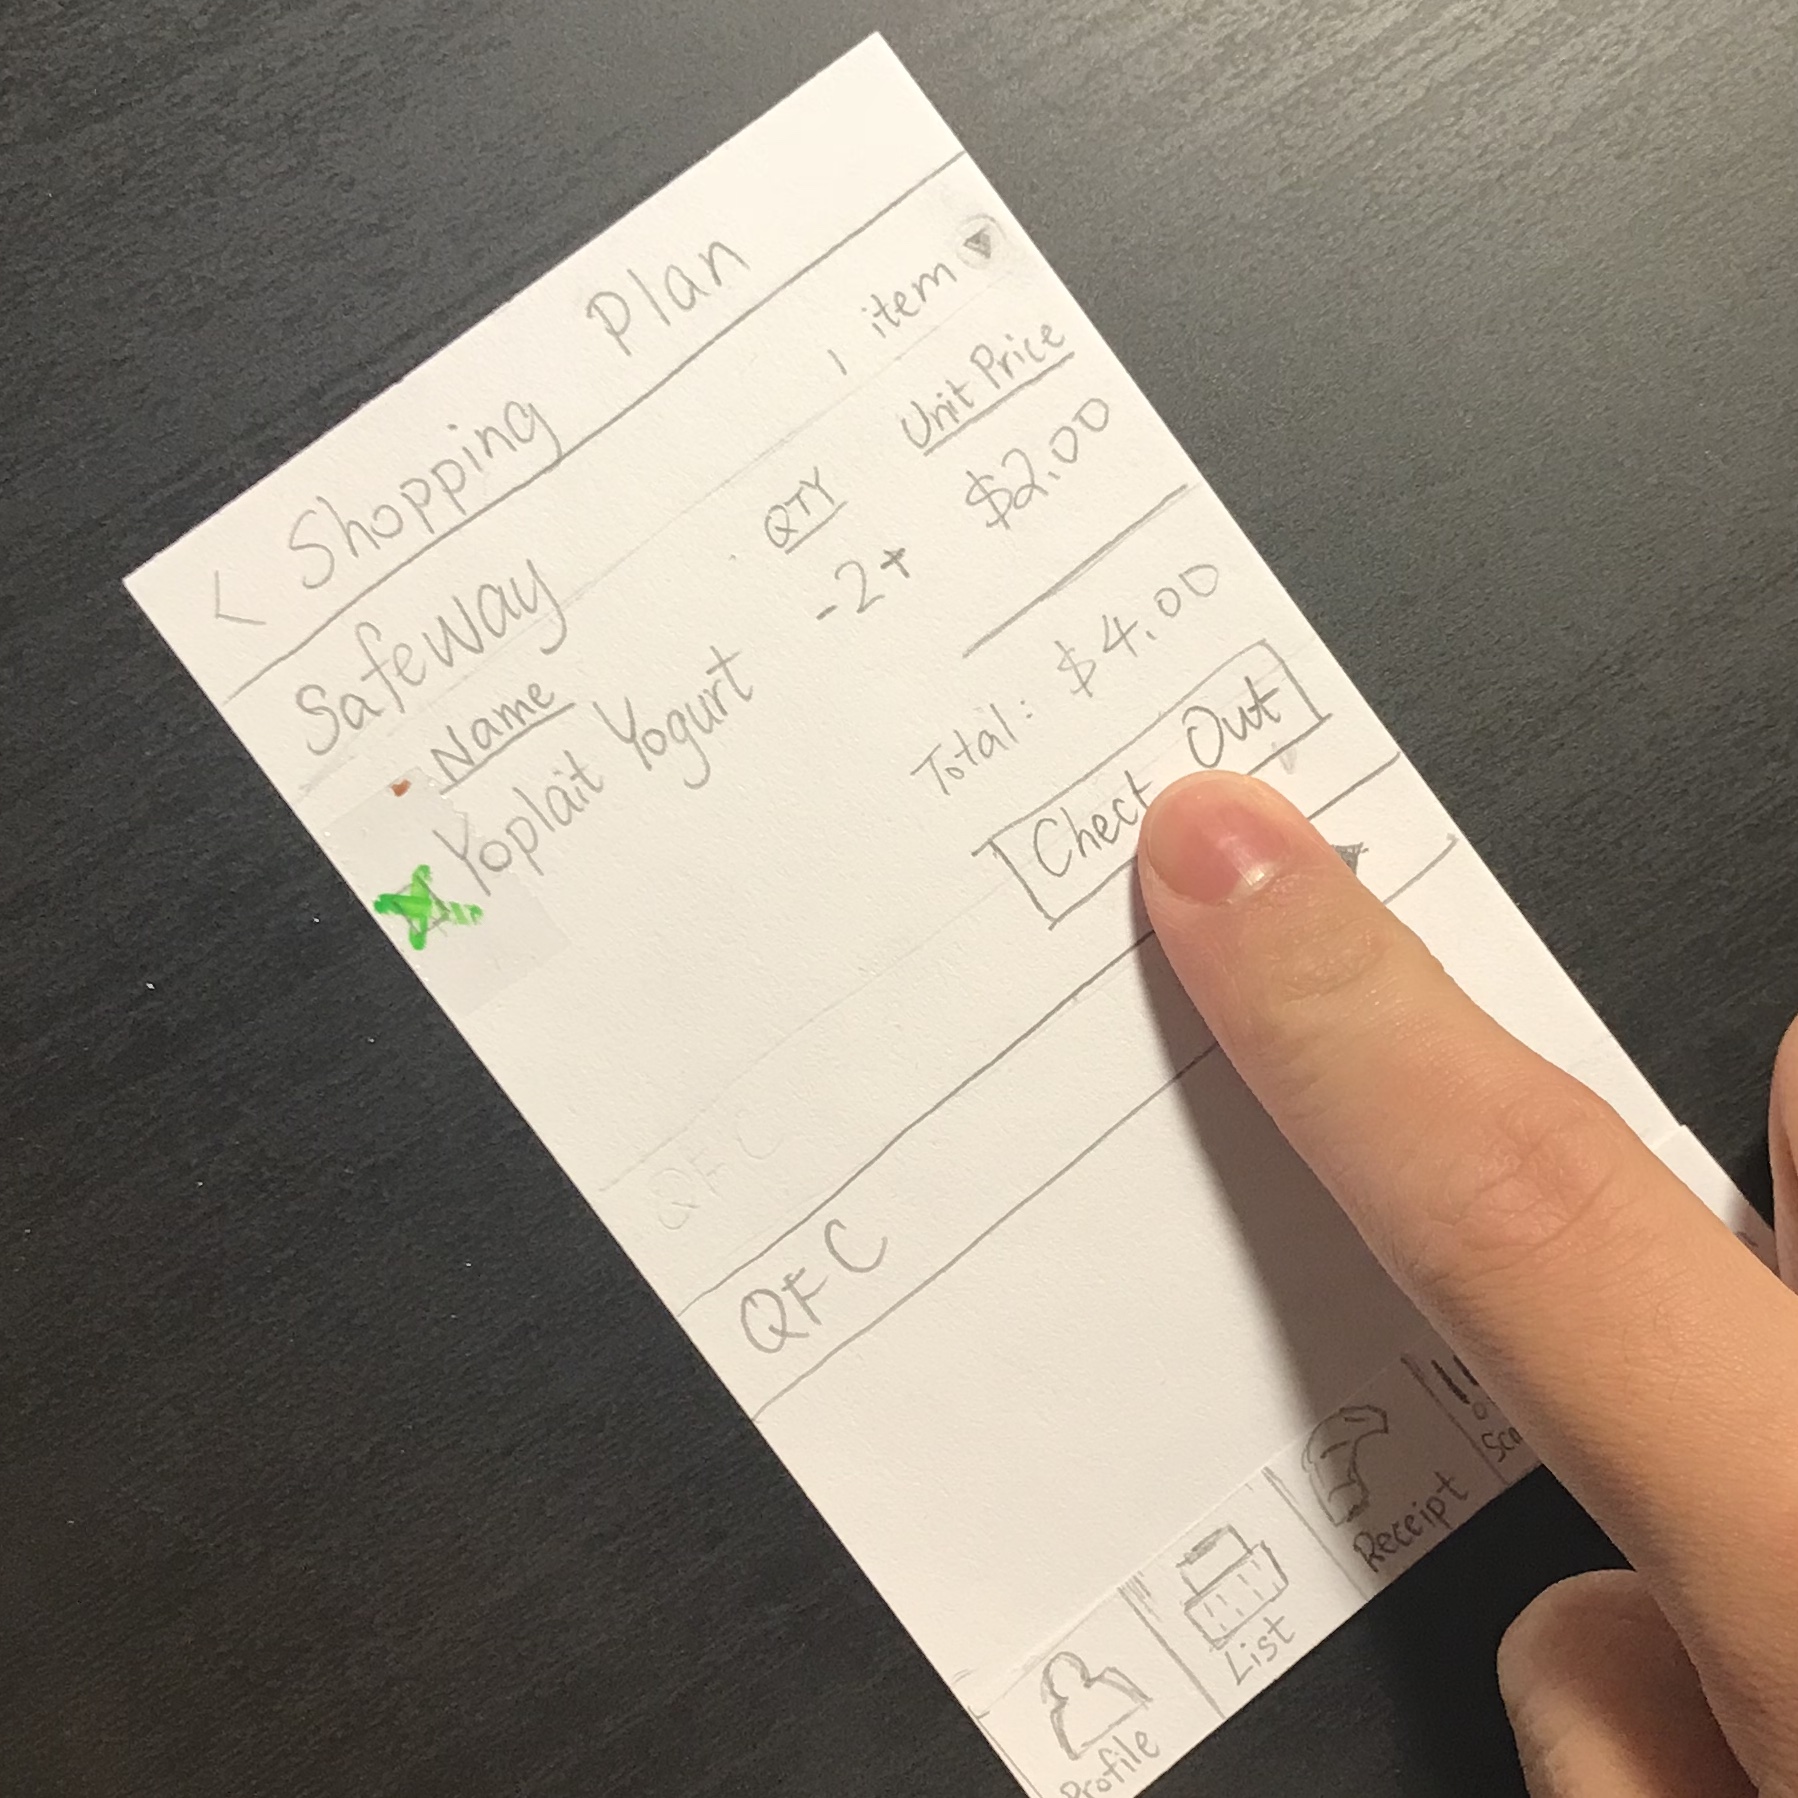 < Shopping Plan
Safeway 1 item
Name QTY Unit Price
Yoplait Yogurt -2+ $2.00
Total: $4.00
Check Out
QFC
QFC
Profile List Receipt